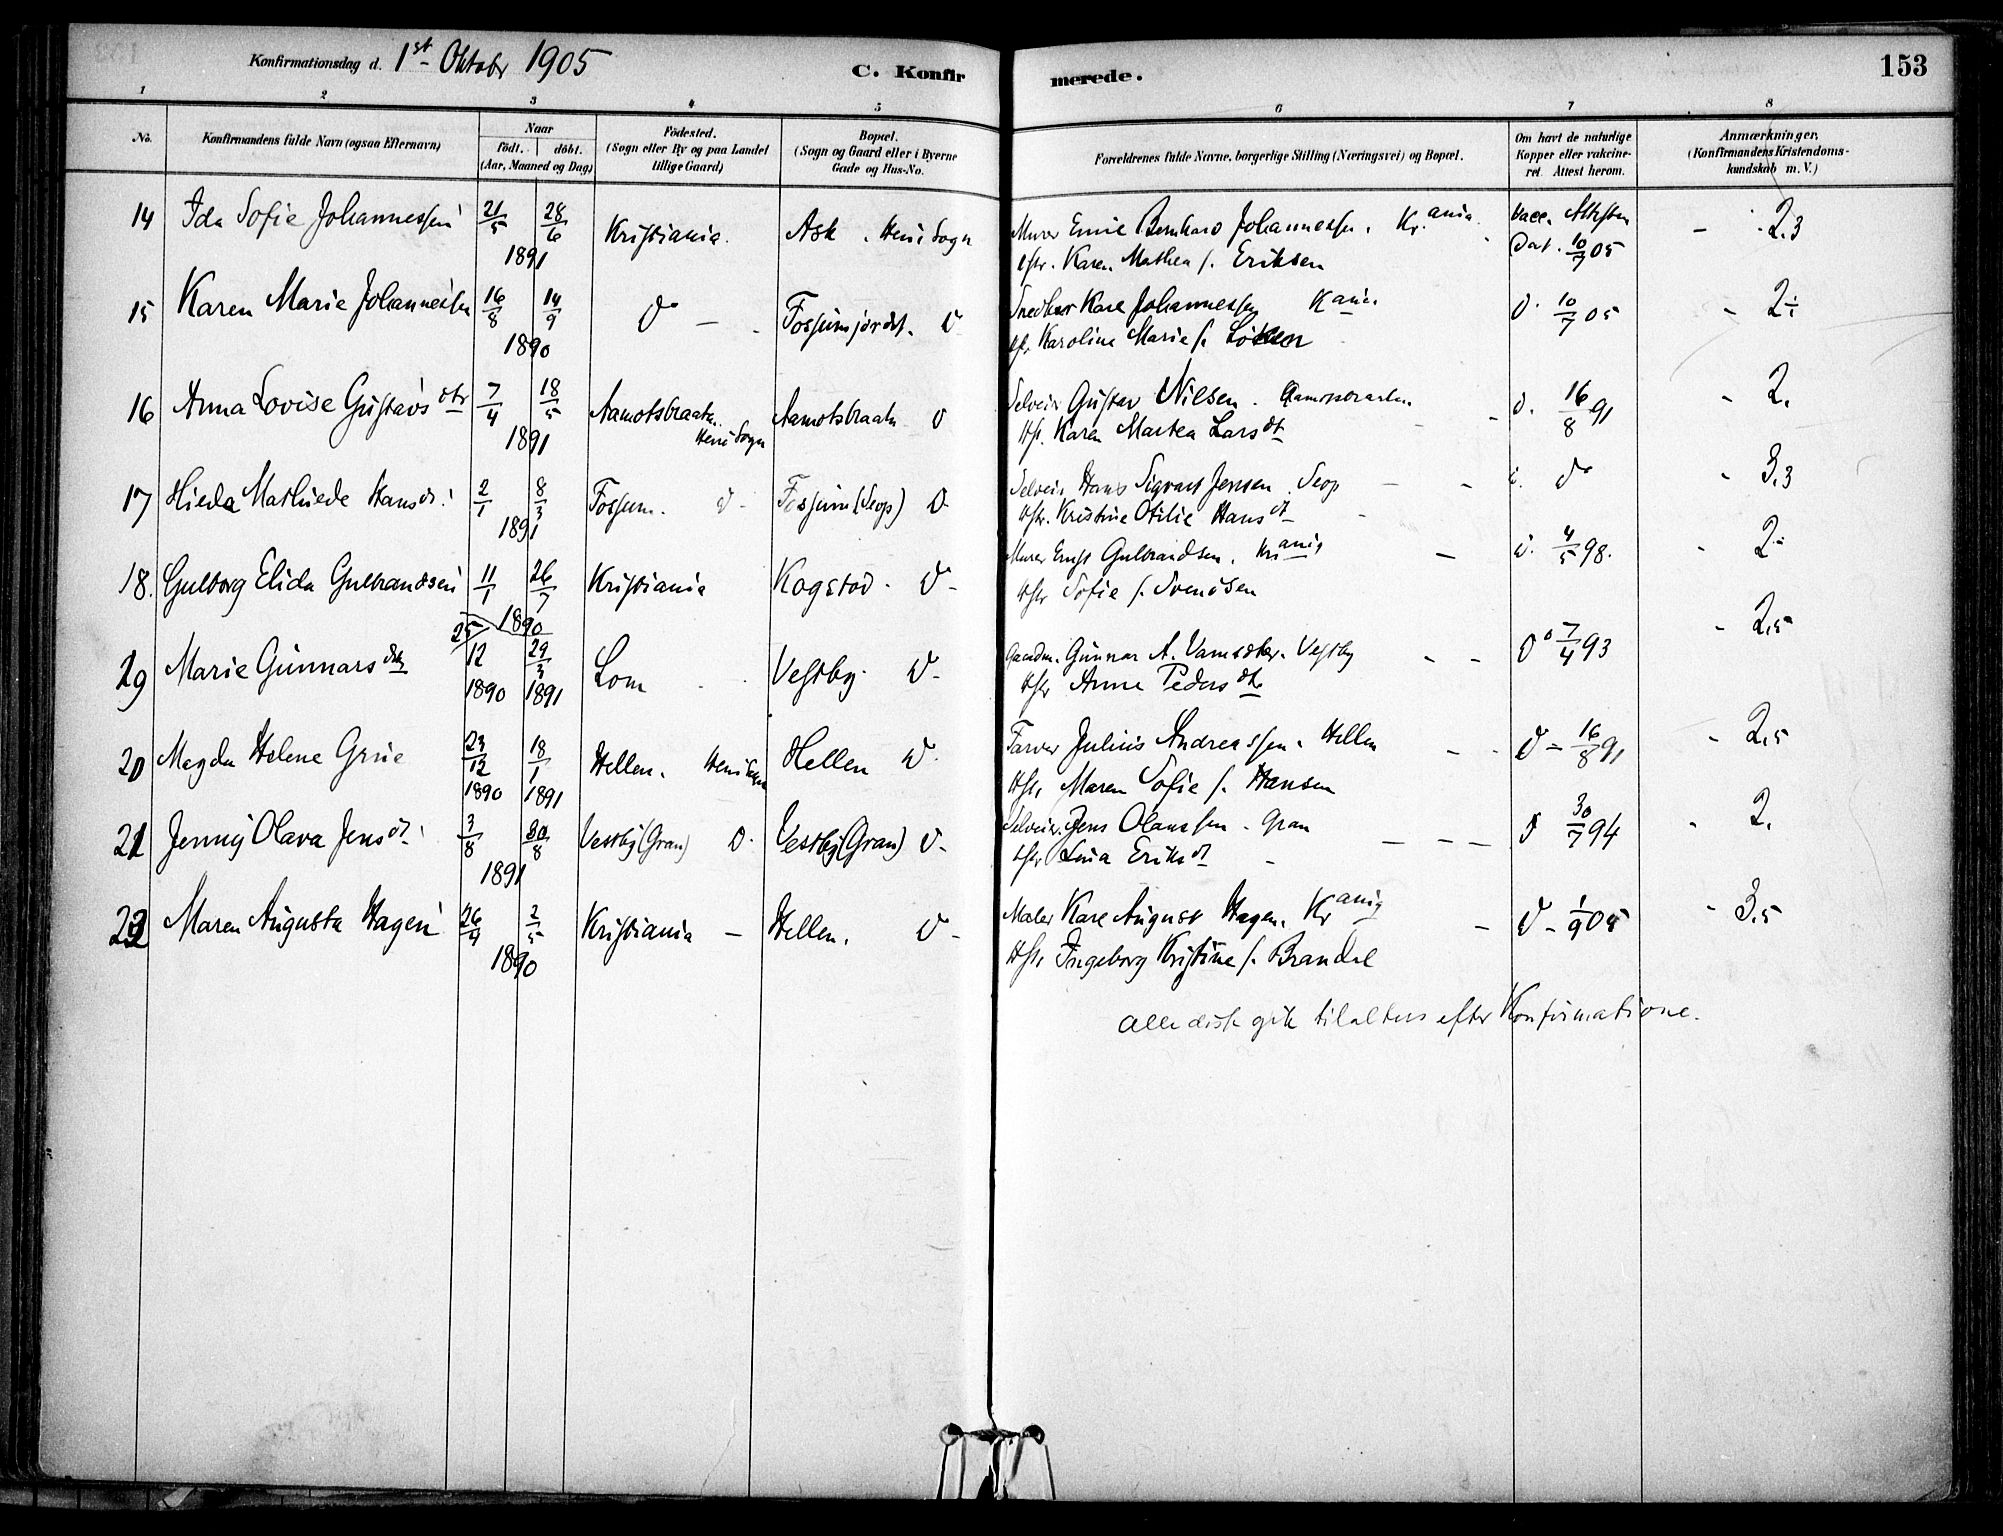 Konfirmationsdag d. 1st Oktobr 1905
C. Konfirmerede.
153
1 2 3 4 5 6 7 8
No.
Konfirmandens fulde Navn (ogsaa Efternavn)
Naar
födt. döbt.
(Aar, Maaned og Dag)
Födested.
(Sogn eller By og paa Landet
tillige Gaard)
Bopæl.
(Sogn og Gaard eller i Byerne
Gade og Hus-No.
Forældrenes fulde Navne, borgerlige Stilling (Næringsvei) og Bopæl.
Om havt de naturlige
Kopper eller vakcine-
ret. Attest herom.
Anmærkninger,
(Konfirmandens Kristendoms-
kundskab m. V.)
14 Ida Sofie Johannessen 21/5 28/6 Kristiania. Ask. Heni Sogn Murer Emil Bernhard Johannessen. Kr.ania. Vacc. Attesten - 2.3
1891 Hstr. Karen Mathea f. Eriksen Dat. 10/7 05
15 Karen Marie Johannessen 16/8 14/9 d° - Fossumjordet. d° Snedker Karl Johannessen Kania d. 10/7 05 - 2÷
1890 Hstr Karoline Marie f. Löken
16 Anna Lovise Gustavsdtr 7/4 18/5 Aamotsbraatn Aamotsbraatn d° Selveier Gustav Nilsen. d. 16/8 91 - 2.
1891 Heni Sogn Hstr. Karen Martea Larsdt
17 Hilda Mathilde Hansdt. 2/1 8/3 Fossum. d° Fossum (Seop) d° Selveier Hans Sigvart Jensen. Seop d. d° - 3.3
1891 Hstr. Kristine Otilie Hansdt
18. Gulborg Elida Gulbrandsen 11/1 26/7 Kristiania Kogstad. d° Murer Ernst Gulbrandsen. Kriania d. 4/5 98. - 2÷
1890 Hstr Sofie f. Svendsen
29 Marie Gunnarsdtr 25/12 29/3 Lom Vestby. d° Gaardm. Gunnar A. Vestby d° 7/4 93 - 2.5
1890 1891 Hstr Anne Pedersdtr
20 Magda Helene Grue 23/12 18/1 Hellen. Heni Sogn Hellen d° Farver Julius Andreassen. Hellen d° - 16/8 91 - 2.5
1890 1891 Hstr Maren Sofie f. Hansen
21 Jenny Olava Jensdt. 3/8 30/8 Vestby (Gran) d° Vestby (Gran) d° Selveier Jens Olaussen. Gran d° 30/7 94 - 2.
1891 Hstr Lina Eriksdt
22 Maren Augusta Hagen 26/4 2/5 Kristiania - Hellen. d° Maler Karl August Hagen. Krania d° - 1/9 05 - 3.5
1890 Hstr Ingeborg Kristine f. Brandel
Alle disse gik tilalters efter Konfirmationen.